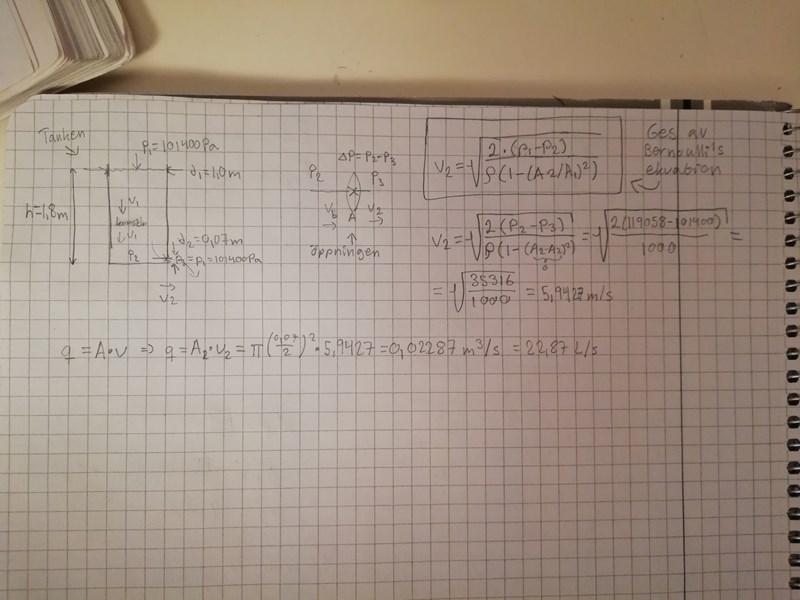 Tanken
P₁=101400Pa
d₁=1,0m
h=1,8m
V₁
V₁
d₂=0,07m
P₂
P₃=P₁=101400Pa
V₂
ΔP=P₂-P₃
P₂
P₃
V₂
A
öppningen
V₂=√(2·(P₁-P₂)/ρ(1-(A2/A₁)²))
Ges av
Bernoulli's
ekvation
V₂=√(2(P₂-P₃)/ρ(1-(A₂-A₂)²))=√(2(119058-101400)/1000)=
0
=√(35316/1000)=5,9427m/s
q=A·v ⇒ q=A₂·v₂=π(0,07/2)²·5,9427=0,02287m³/s=22,87L/s